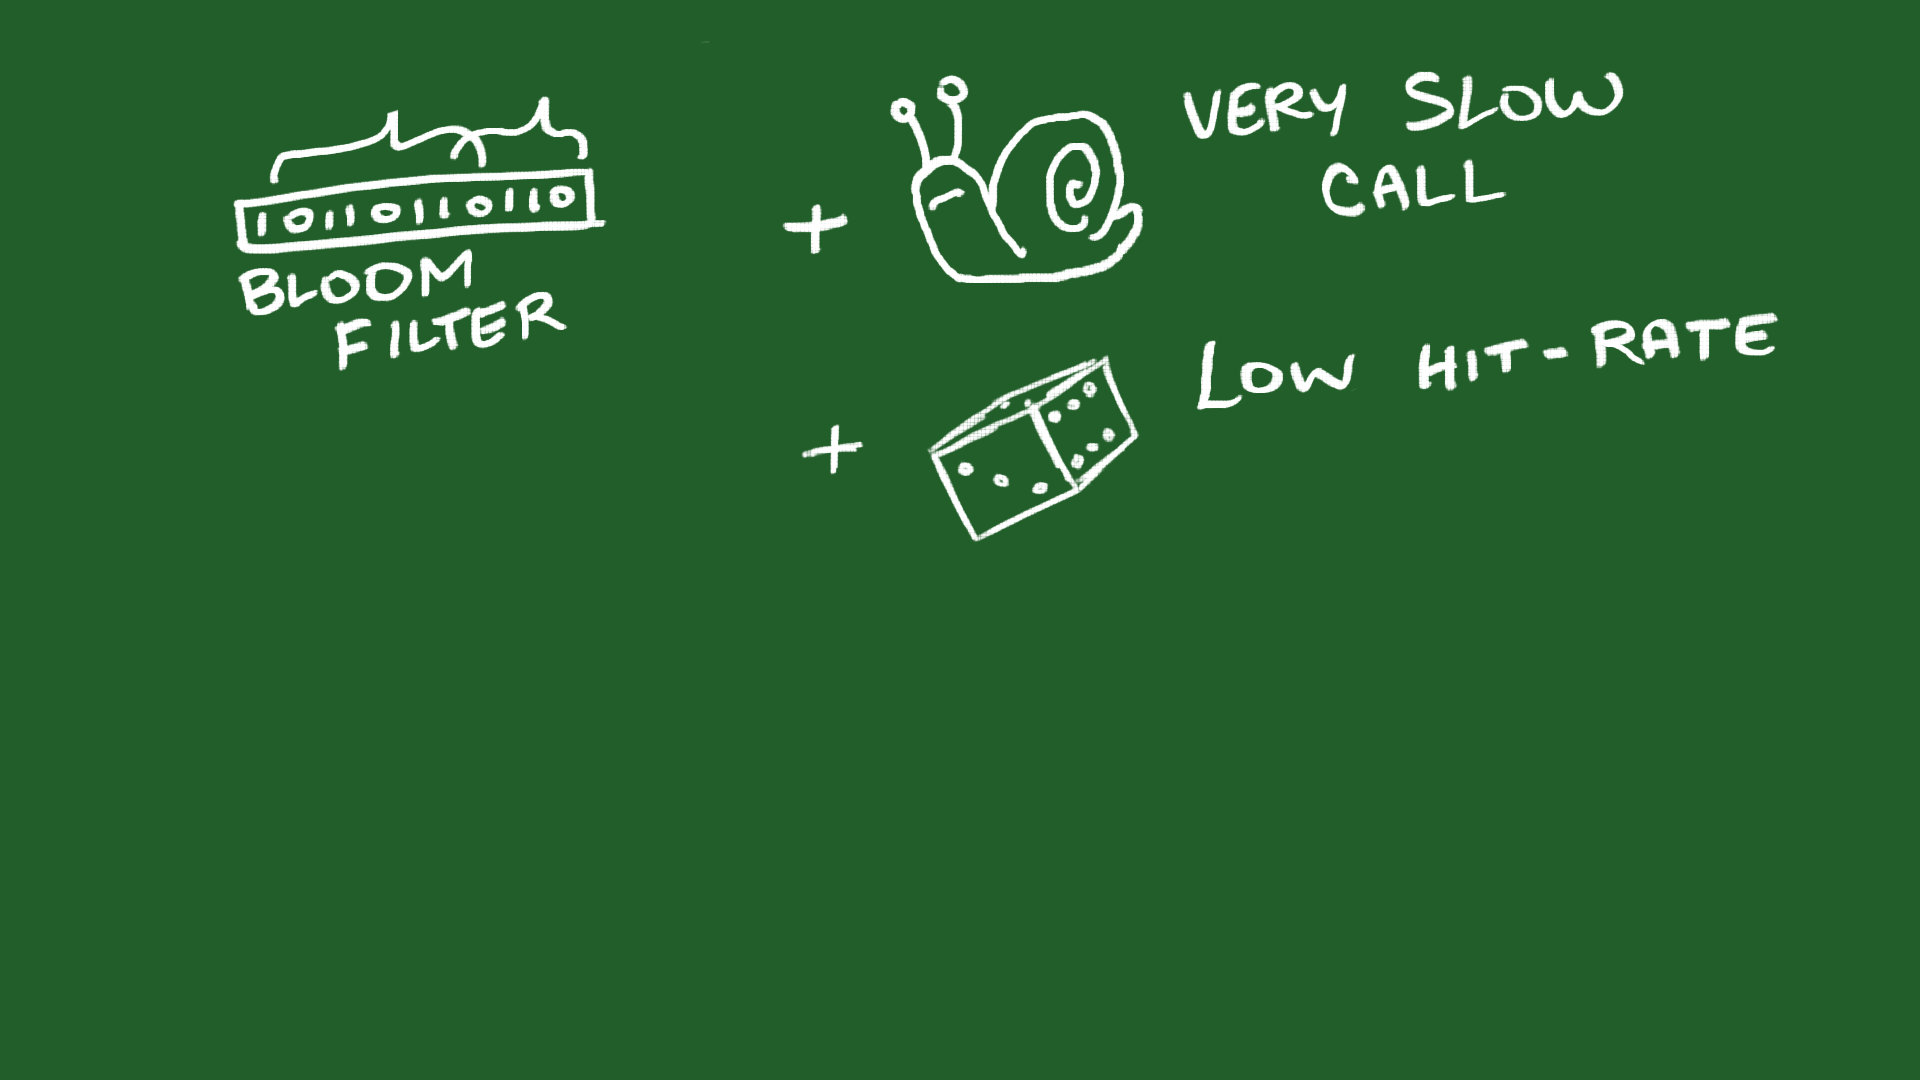 1011011 0110
BLOOM
FILTER
+
VERY SLOW
CALL
+
LOW HIT-RATE